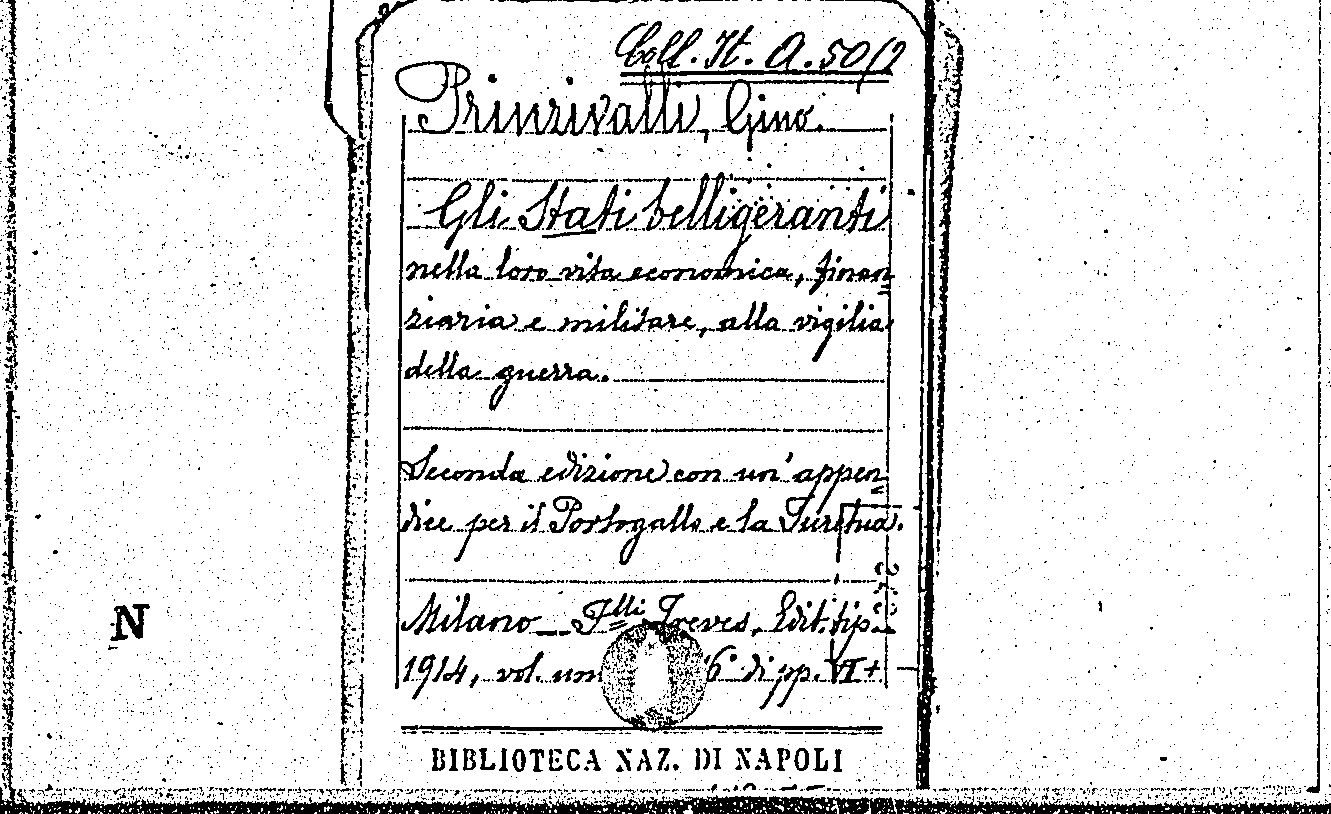 Coll. It. A. 50/2
Prinzivalli, Gino.
Gli Stati belligeranti
nella loro vita economica, finan=
ziaria e militare, alla vigilia
della guerra.
Seconda edizione con un'appen=
dice per il Portogallo e la Turchia.
Milano _ F.lli Treves, Edit. tip.
1914, vol. un 6° di pp. VI +
N
BIBLIOTECA NAZ. DI NAPOLI